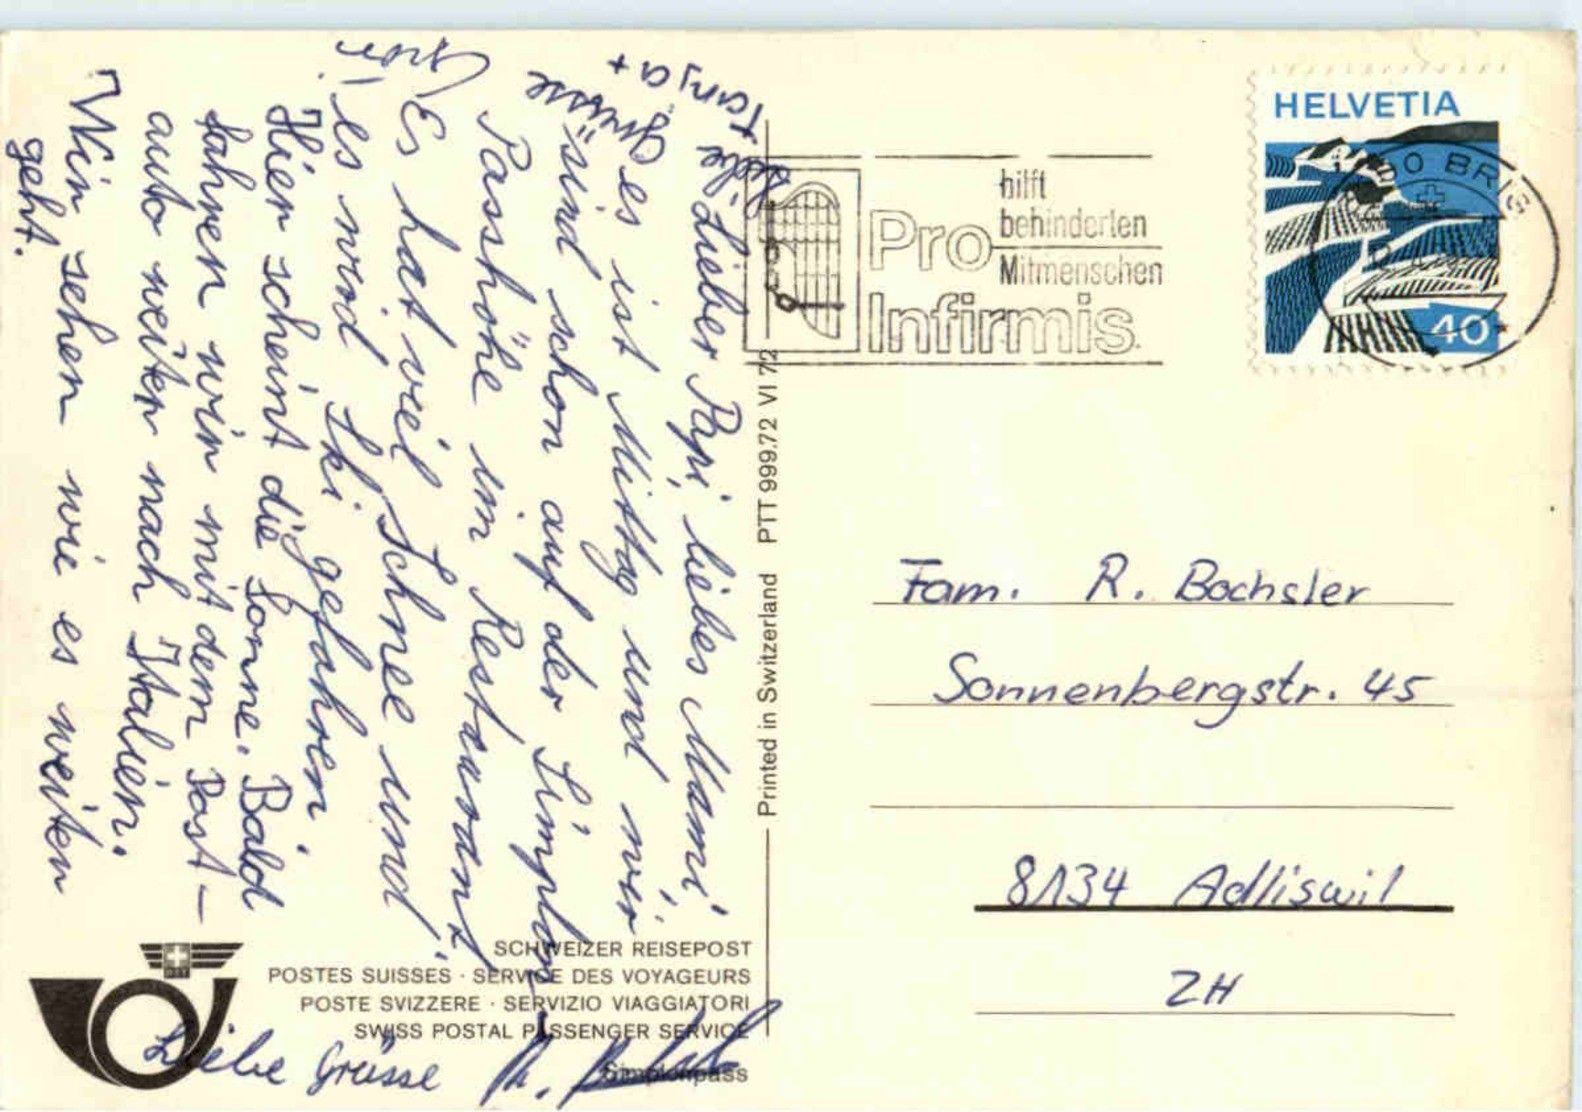 Lieber Papi, liebes Mami
es ist Mittag und wir
sind schon auf der Simplon
Passhöhe im Restaurant
Es hat viel Schnee und
es wird Ski gefahren
Hier scheint die Sonne. Bald
fahren wir mit dem Post-
auto weiter nach Italien.
Wir sehen wie es weiter
geht.
Liebe Grüsse
Tanja +
Liebe Grüsse
HELVETIA
40
BRIG
Pro
Infirmis
hilft
behinderten
Mitmenschen
Printed in Switzerland PTT 999.72 VI 72
Fam. R. Bochsler
Sonnenbergstr. 45
8134 Adliswil
ZH
SCHWEIZER REISEPOST
POSTES SUISSES · SERVICE DES VOYAGEURS
POSTE SVIZZERE · SERVIZIO VIAGGIATORI
SWISS POSTAL PASSENGER SERVICE
Simplonpass